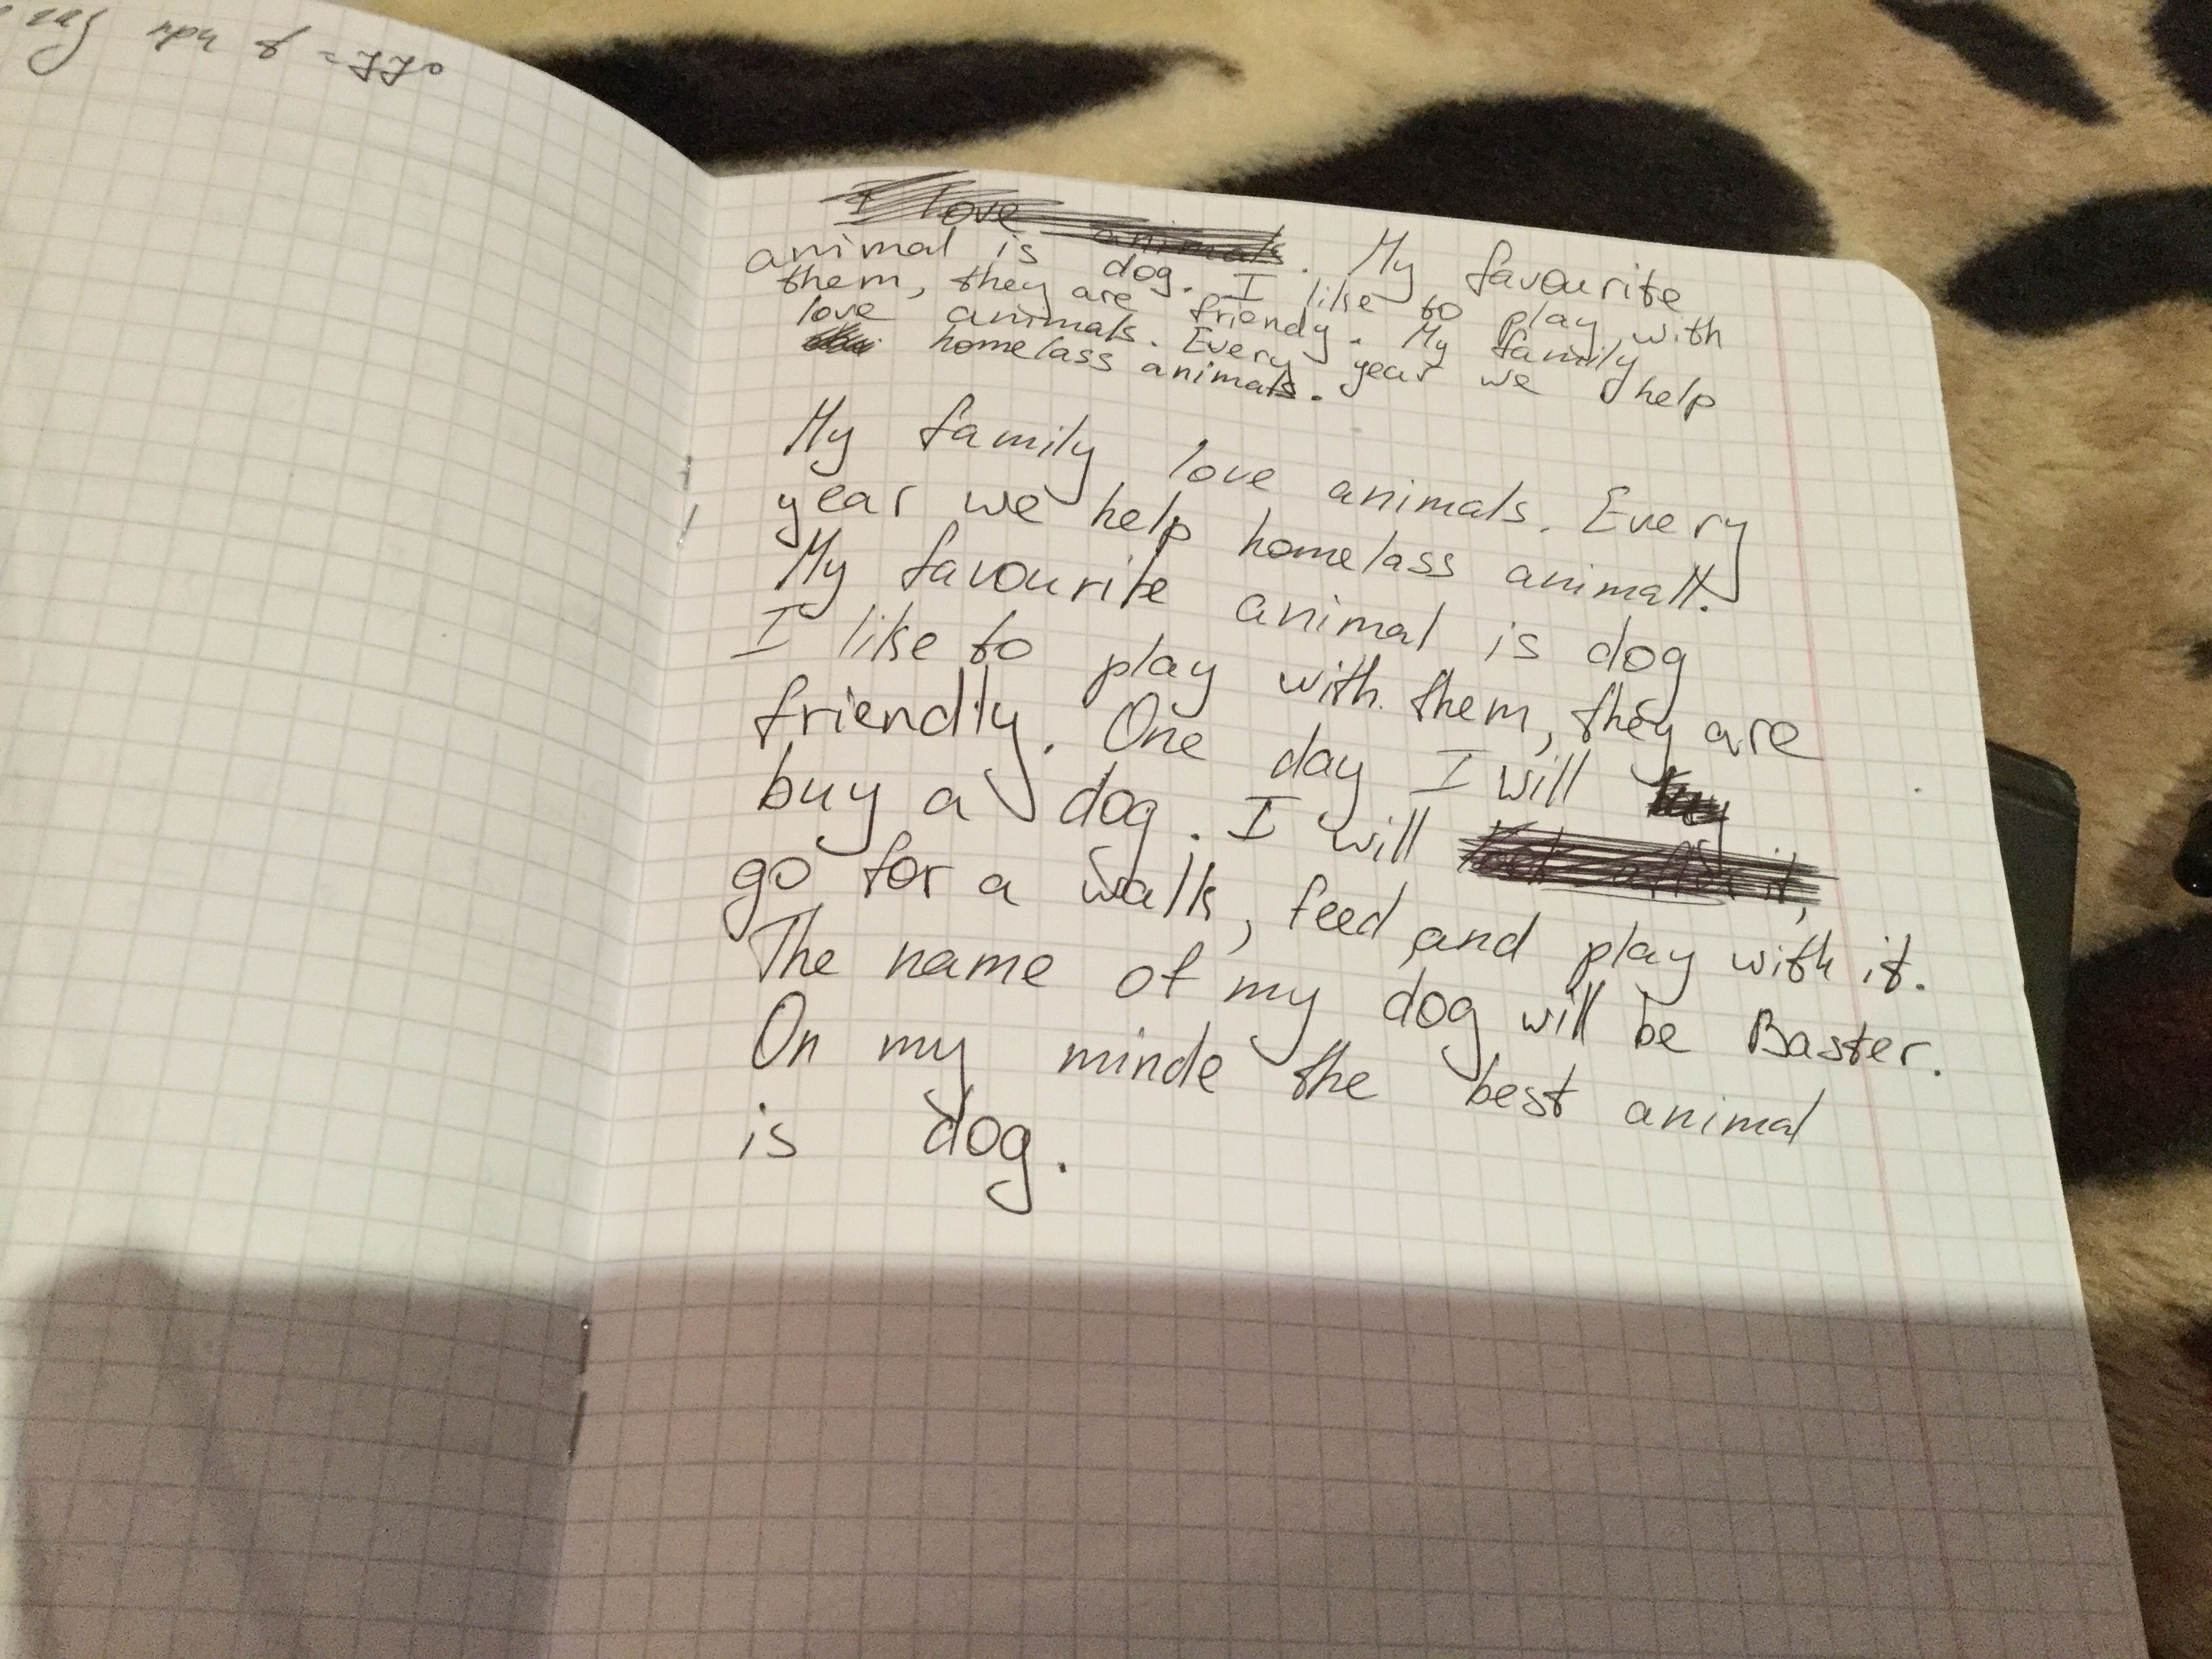 I love animals. My favourite
animal is dog. I like to play with
them, they are friendy. My family
love animals. Every year we help
homelass animals.
My family love animals. Every
year we help homelass animals.
My favourite animal is dog
I like to play with them, they are
friendly. One day I will
buy a dog. I will
go for a walk, feed and play with it.
The name of my dog will be Baster.
On my minde the best animal
is dog.